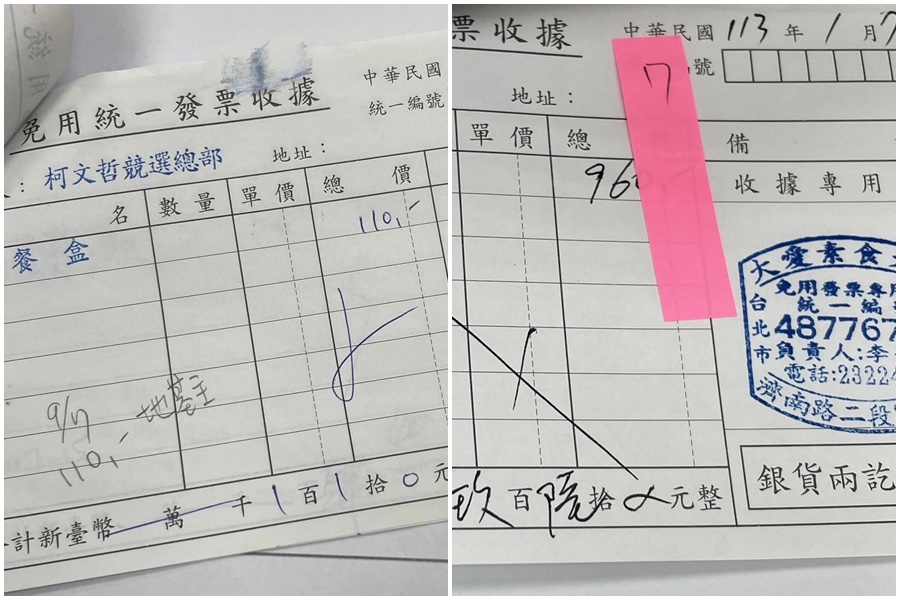 免用統一發票收據
中華民國
統一編號
：柯文哲競選總部
地址：
名 數量 單價 總價
餐盒 110,-
9/17 地基主
110,-
計新臺幣 萬 千 1 百 1 拾 0 元
票收據
中華民國 113 年 1 月 7
號
7
地址：
單價 總 備
960,- 收據專用
大愛素食
免用發票專用
統一編
台北市
487767
負責人:李
電話:23224
濟南路二段
玖百陸拾 元整
銀貨兩訖